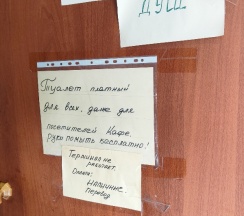 ДУШ
Туалет платный
для всех, даже для
посетителей Кафе.
Руки помыть бесплатно!
Терминал не
работает.
Оплата:
Наличные.
Перевод